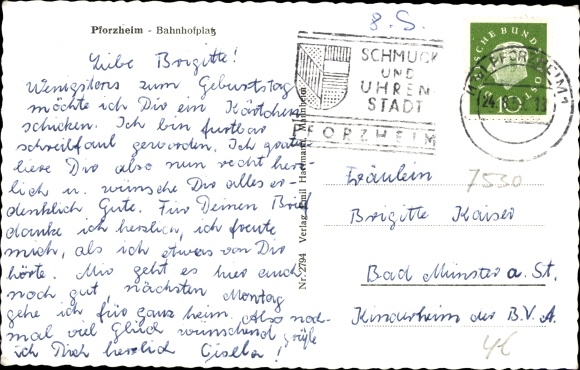 8. S.
Pforzheim - Bahnhofplatz
Liebe Brigitte!
Wenigstens zum Geburtstag
möchte ich Dir ein Kärtchen
schicken. Ich bin furtbar
schreibfaul geworden. Ich gratu
liere Dir also nun recht herz-
lich u. wünsche Dir alles er-
denklich Gute. Für Deinen Brief
danke ich herzlich, ich freute
mich, als ich etwas von Dir
hörte. Mir geht es hier auch
noch gut nächsten Montag
gehe ich für ganz heim. Also noch-
mal viel Glück wünschend grüße
ich Dich herzlich Gisella!
Nr. 2794 Verlag Emil Hartmann, Mannheim
SCHMUCK
UND
UHREN
STADT
PFORZHEIM
PFORZHEIM 1
DEUTSCHE BUNDESPOST
10
Fräulein
7530
Brigitte Kaiser
Bad Münster a. St.
Kinderheim der B.V.A.
4€